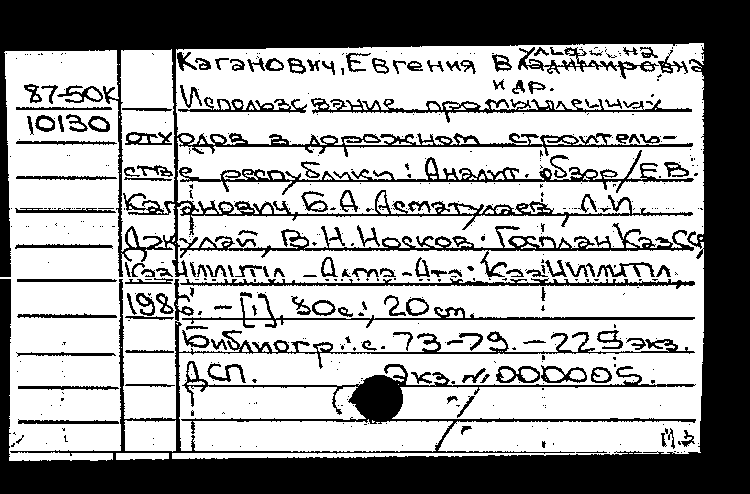 Ульфовна
Каганович, Евгения Владимировна
и др.
87-50К Использование промышленных
10130 отходов в дорожном строитель-
стве республики: Аналит. обзор/Е.В.
Каганович, Б.А. Асматулаев, Л.И.
Джулай, В.Н. Носков; Госплан КазССР,
КазНИИНТИ. -Алма-Ата: КазНИИНТИ,
1986. -[1], 80с.; 20см.
Библиогр.: с. 73-79. -225экз.
ДСП. Экз. № 000005.